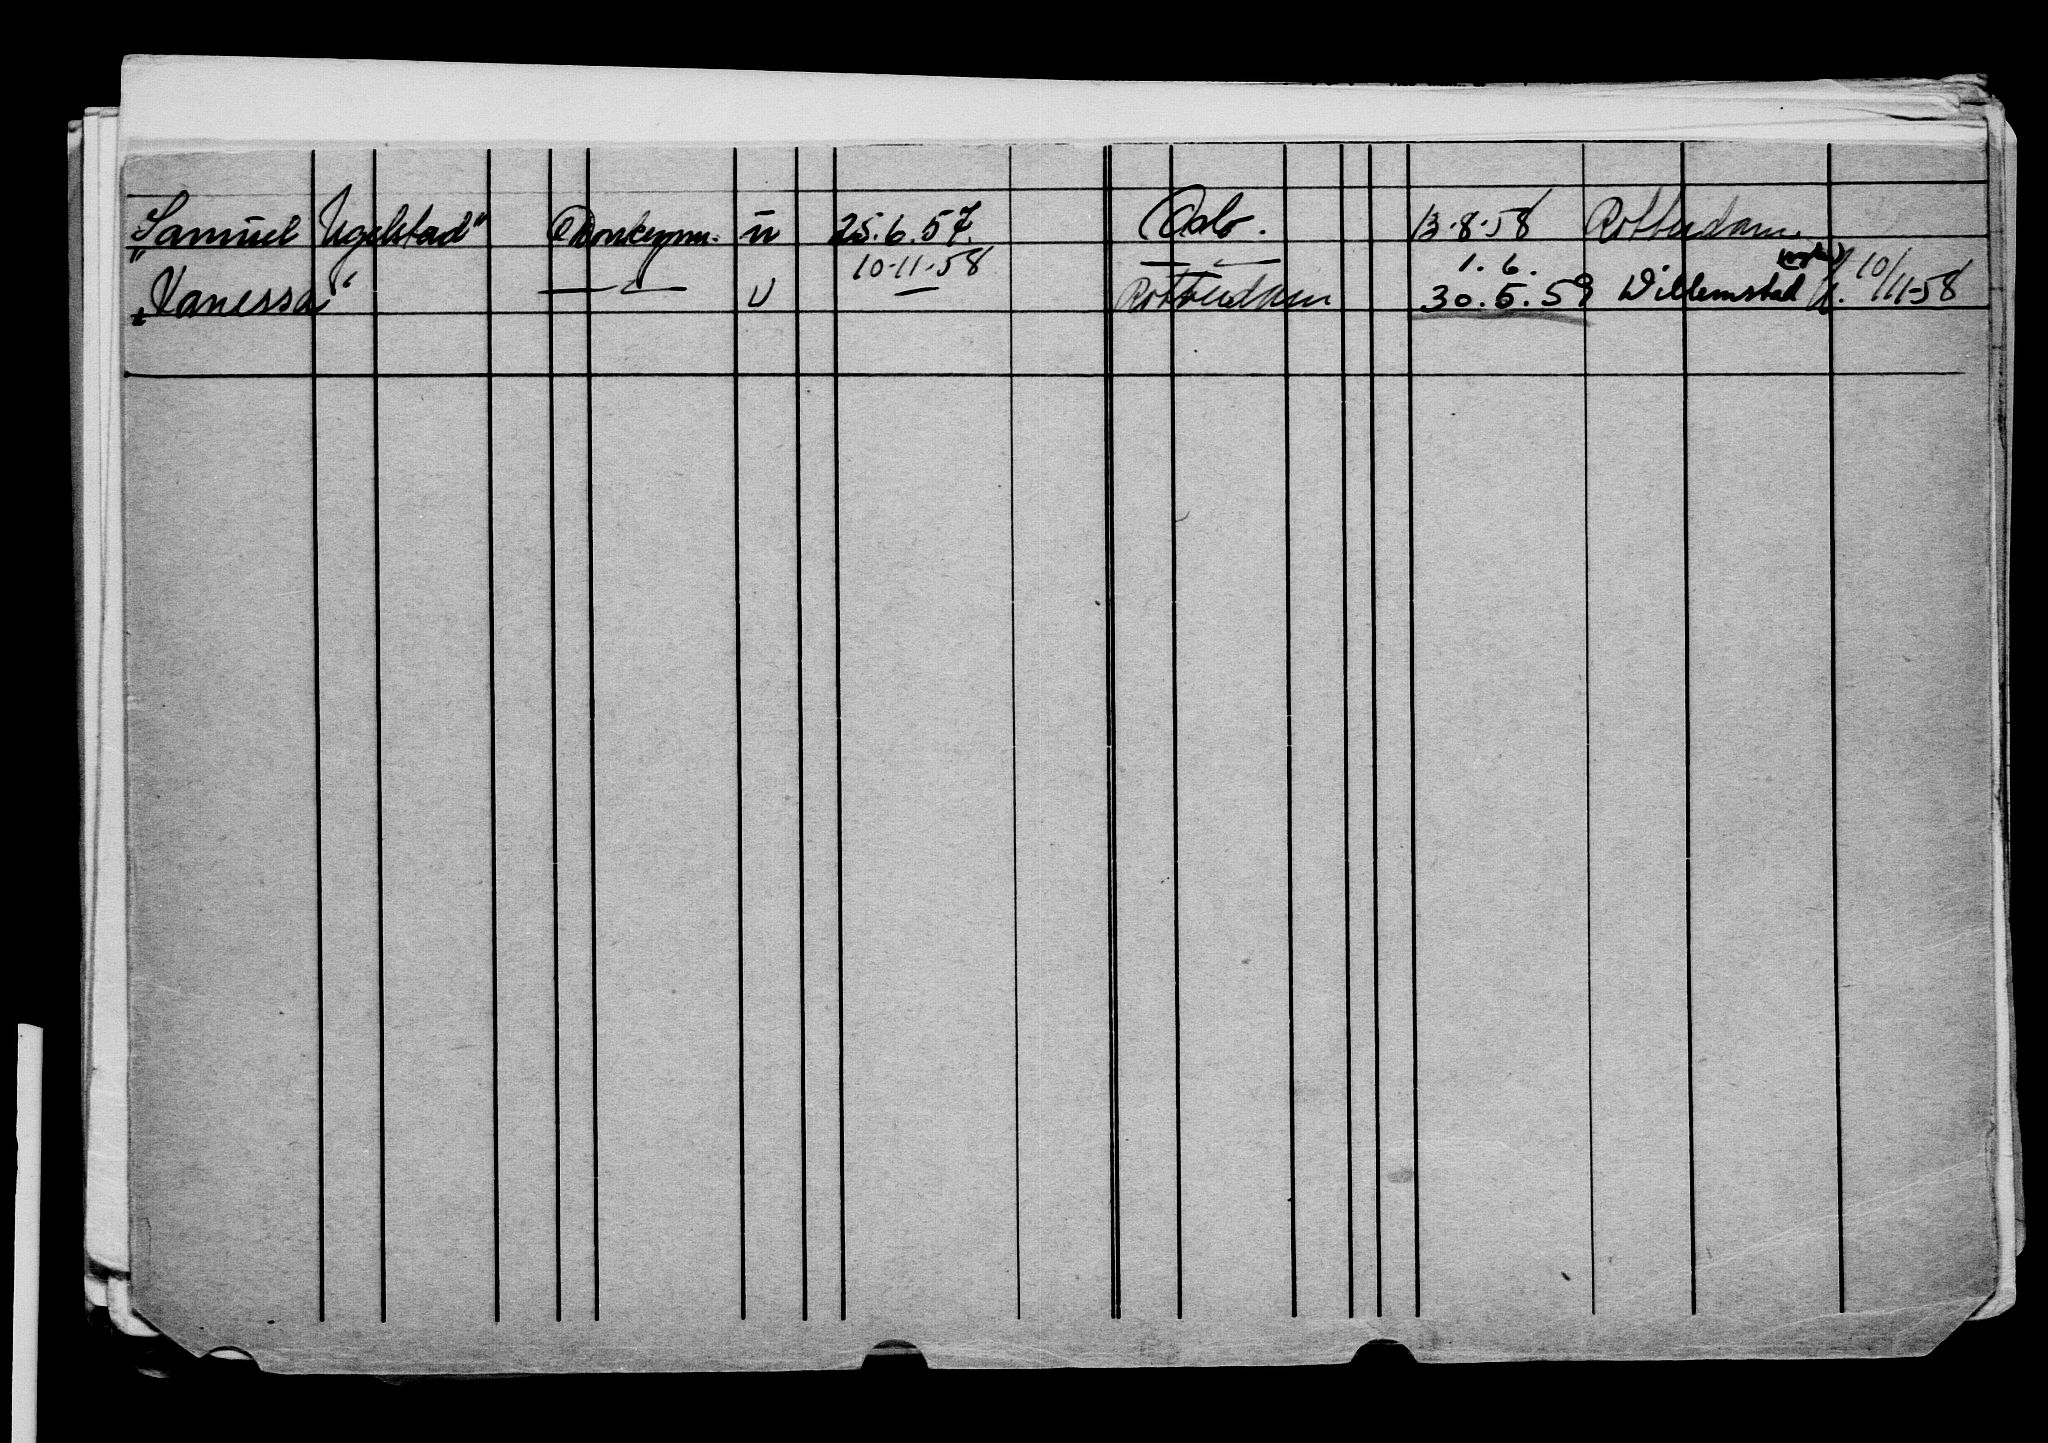 "Samuel Ugelstad" Donkeymn. u 25.6.57. Oslo. 13.8.58 Rotterdam.
10-11-58 — " — 1.6.
"Vanessa" — " — u — Rotterdam 30.5.59 Willemstad 10/11-58